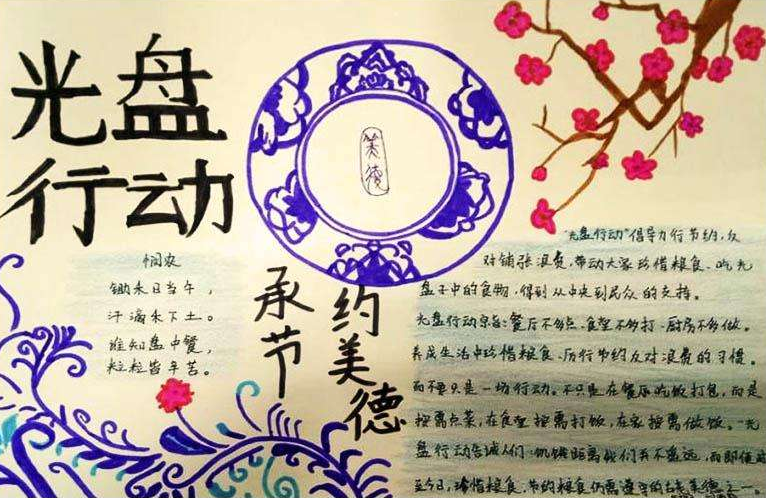 光盘
行动
美德
悯农
锄禾日当午，
汗滴禾下土。
谁知盘中餐，
粒粒皆辛苦。
承节
约美德
"光盘行动"倡导力行节约,反
对铺张浪费,带动大家珍惜粮食、吃光
盘子中的食物,得到从中央到民众的支持。
光盘行动宗旨:餐厅不多点、食堂不多打、厨房不多做。
养成生活中珍惜粮食、厉行节约反对浪费的习惯。
而不要只是一场行动。不只是在餐厅吃饭打包,而是
按需点菜,在食堂按需打饭,在家按需做饭。"光
盘行动"告诫人们:饥饿距离我们并不遥远,而即便
至今日,珍惜粮食、节约粮食仍需遵守的古老美德之一。